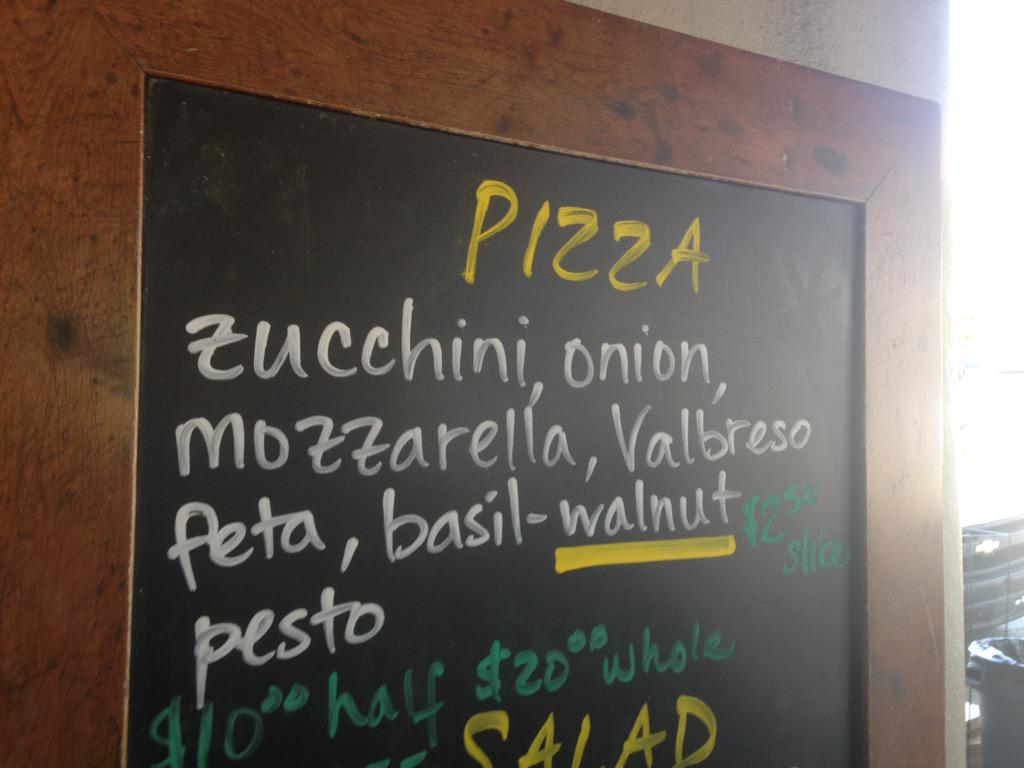 PIZZA
zucchini, onion,
mozzarella, Valbreso
feta, basil-walnut $2.50
slice
pesto
$10.00 half $20.00 whole
SALAD